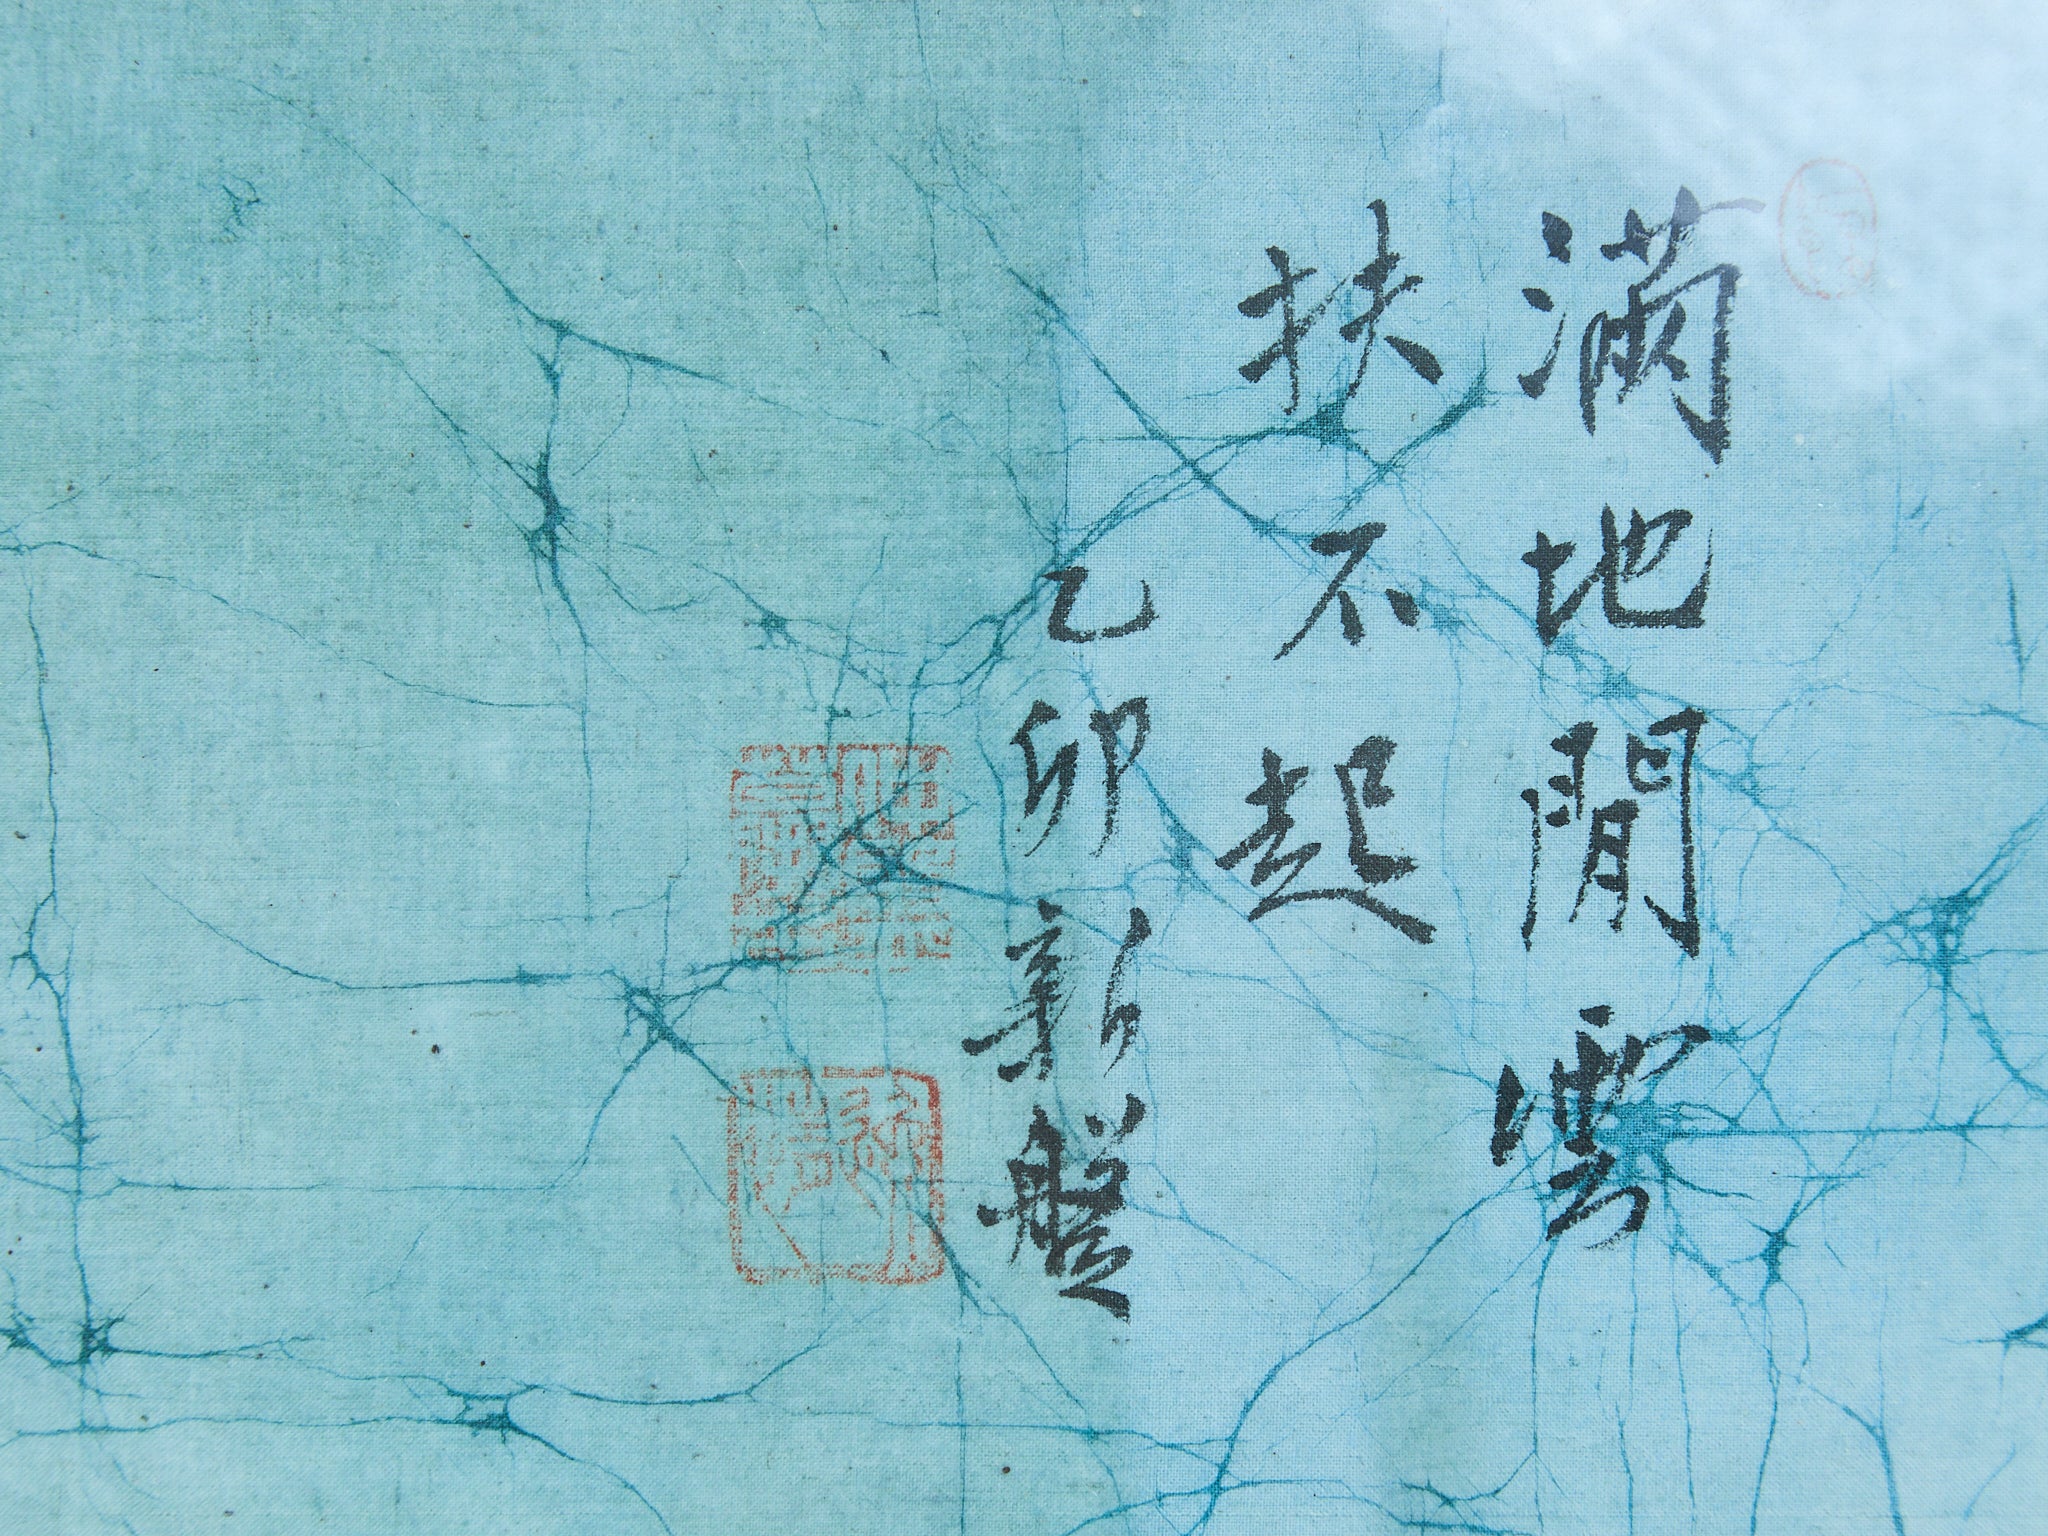 滿地閒雲
扶不起
乙卯新盤